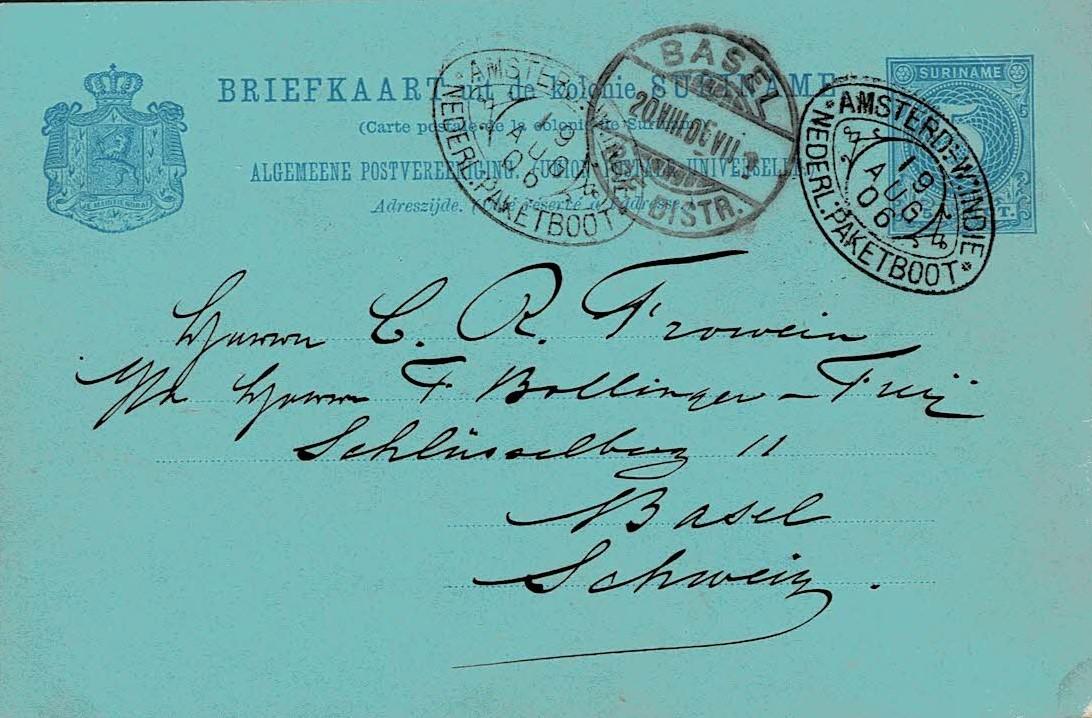 BRIEFKAART uit de kolonie SURINAME
(Carte postale de la colonie de Suriname)
ALGEMEENE POSTVEREENIGING. (UNION POSTALE UNIVERSELLE)
Adreszijde. (Côté réservé à l'adresse.)
JE MAINTIENDRAI
AMSTERD: W: INDIE
19 AUG 06
NEDERL. PAKETBOOT
BASEL
20.VIII.06.VII
DISTR.
SURINAME
5
AMSTERD: W: INDIE
19 AUG 06
NEDERL. PAKETBOOT
Herrn C. R. Frowein
Herrn F Bollinger-Frey
Schlüsselberg 11
Basel
Schweiz.